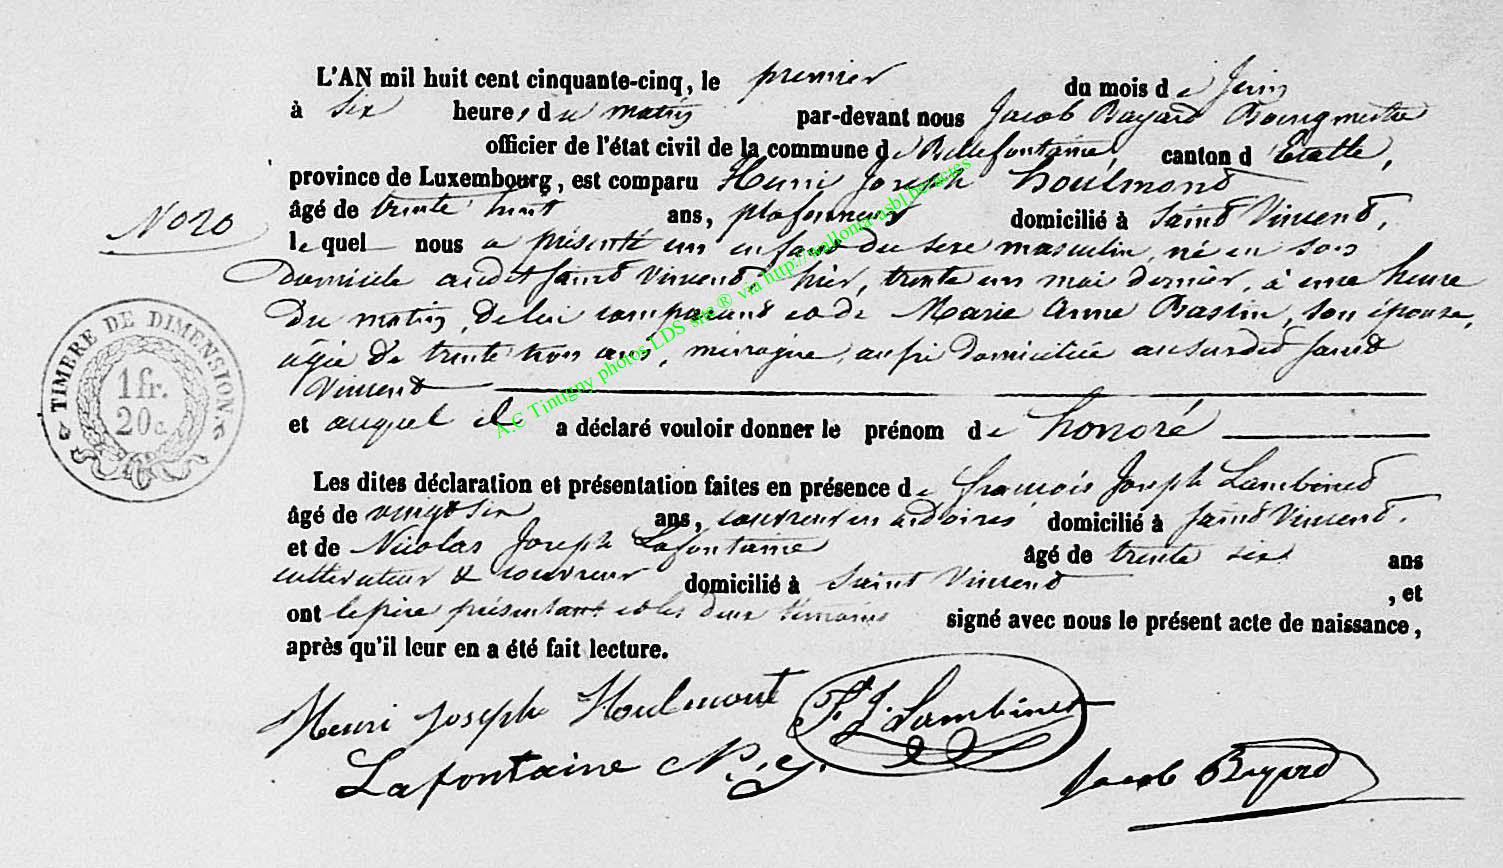 L'AN mil huit cent cinquante-cinq, le premier du mois de Juin
à six heures du matin par-devant nous Jacob Bayard Bourgmestre
officier de l'état civil de la commune de Bellefontaine, canton d'Etalle,
province de Luxembourg, est comparu Henri Joseph houlmont
N° 20
âgé de trente huit ans, plafonneur domicilié à Saint Vincent,
lequel nous a présenté un enfant du sexe masculin, né en son
domicile audit Saint Vincent, hier, trente un mai dernier, à une heure
du matin, de lui comparant et de Marie Anne Bastin, son épouse,
agée de trente trois ans, ménagère, aussi domiciliée au susdit Saint
Vincent
et auquel il a déclaré vouloir donner le prénom de honoré
Les dites déclaration et présentation faites en présence de françois Joseph Lambinet
âgé de vingt six ans, couvreur en ardoises domicilié à Saint Vincent.
et de Nicolas Joseph Lafontaine âgé de trente six ans
cultivateur & couvreur domicilié à Saint Vincent , et
ont le père présentant et les deux témoins signé avec nous le présent acte de naissance,
après qu'il leur en a été fait lecture.
Henri Joseph Houlmont F. J. Lambinet
Lafontaine N. J. Jacob Bayard
TIMBRE DE DIMENSION.
1 fr.
20 c
A.C Tintigny photos LDS site ® via http://wallonia-asbl.be/actes